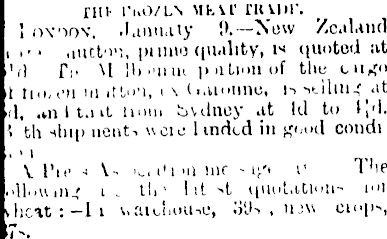 THE FROZEN MEAT TRADE.
LONDON, January 9.—New Zealand
mutton, prime quality, is quoted at
The Melbourne portion of the cargo
of frozen mutton, ex Garonne, is selling at
and that from Sydney at 4d to
Both shipments were landed in good condi
A Press Association message The
following the latest quotations for
wheat:—In warehouse, 39s, new crops,
37s.